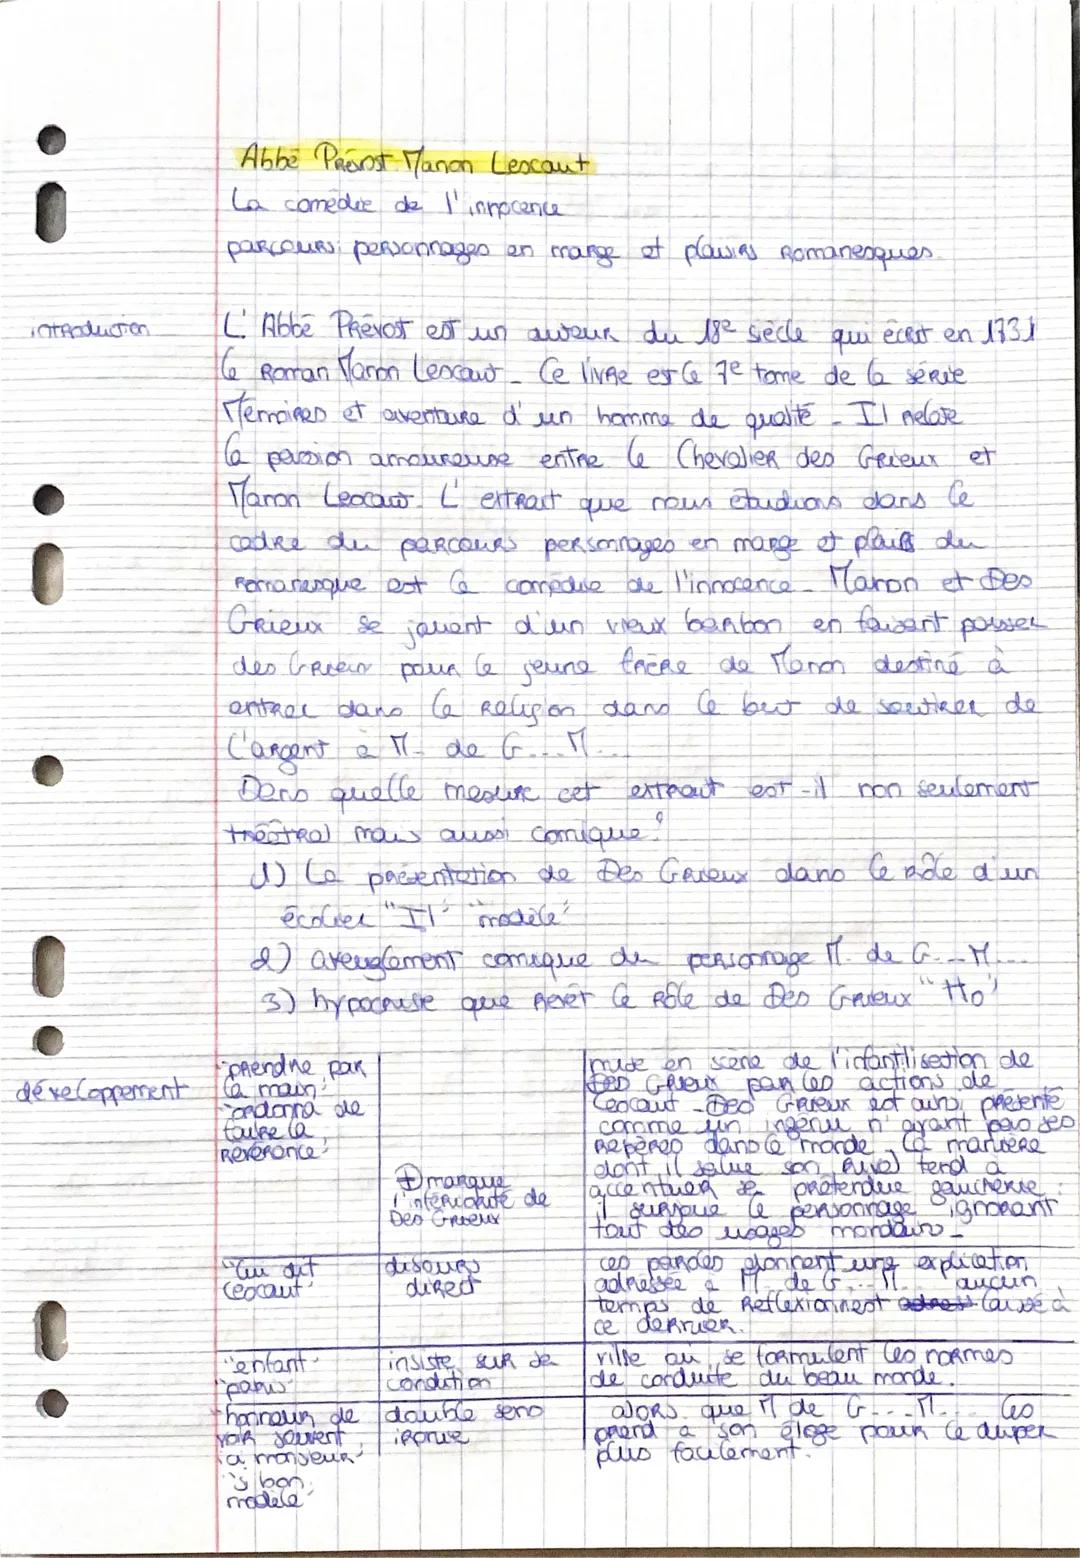 Abbé Prévost Manon Lescaut
La comédie de l'innocence
parcours: personnages en marge et plaisirs Romanesques.
introduction
L'Abbé Prévost est un auteur du 18e siècle qui écrit en 1731
le Roman Manon Lescaut. Ce livre est le 7e tome de la série
Memoires et aventure d'un homme de qualité. Il relate
la passion amoureuse entre le Chevalier des Grieux et
Manon Lescaut. L'extrait que nous étudions dans le
cadre du parcours personnages en marge et plaisirs du
Romanesque est la comédie de l'innocence. Manon et Des
Grieux se jouent d'un vieux barbon en faisant passer
des Grieux pour le jeune frère de Manon destiné à
entrer dans la Religion dans le but de soutirer de
l'argent à M. de G...M...
Dans quelle mesure cet extrait est-il non seulement
théâtral mais aussi comique?
1) La présentation de Des Grieux dans le rôle d'un
écolier "Il" "modèle"
2) aveuglement comique du personnage M. de G...M...
3) hypocrisie que revêt le rôle de Des Grieux "Ho"
développement
"prendre par
la main"
"ordonna de
faire la
Révérence"
⊕ marque
l'infériorité de
Des Grieux
mise en scène de l'infantilisation de
Des Grieux par les actions de
Lescaut. Des Grieux est ainsi présenté
comme un ingénu n'ayant pas ses
Repères dans le monde, la manière
dont il salue son Rival tend à
accentuer sa prétendue gaucherie :
il surjoue le personnage ignorant
tout des usages mondains.
"lui dit
Lescaut"
discours
direct
ces paroles donnent une explication
adressée à M. de G...M... aucun
temps de Reflexion n'est laissé à
ce dernier.
"enfant"
"paris"
insiste sur sa
condition
ville où se formulent les normes
de conduite du beau monde.
"honneur de
voir souvent
ici monsieur"
"si bon
modèle"
double sens
ironie
alors que M de G...M... Les
prend à son éloge pour le duper
plus facilement.